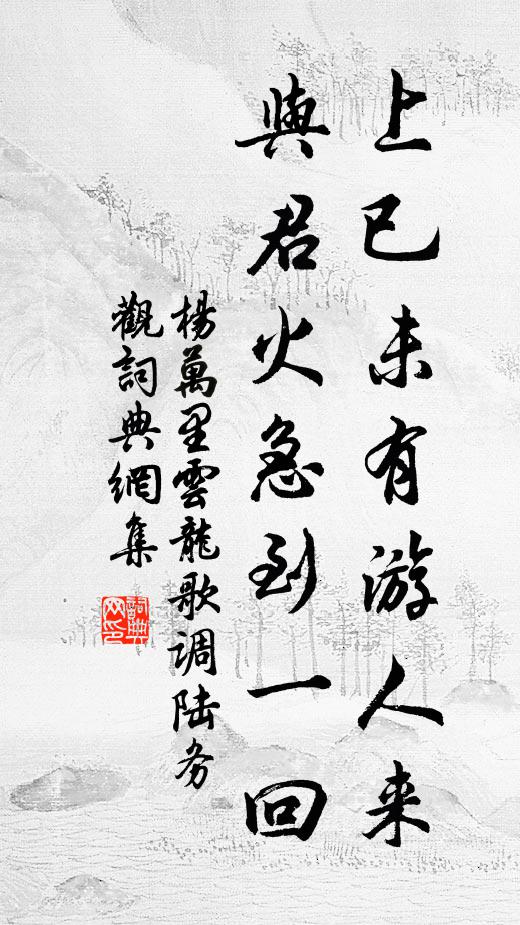 上巳未有游人来
與君火急到一回
楊萬里雲龍歌调陆务
觀詞典網集
詞典
网印